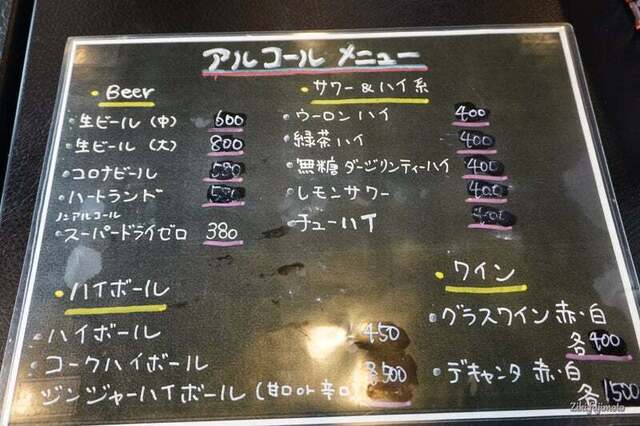 アルコール メニュー
Beer
生ビール (中) 600
生ビール (大) 800
コロナビール
ハートランド
ノンアルコール
スーパードライゼロ 380
サワー&ハイ系
ウーロンハイ 400
緑茶ハイ 400
無糖 ダージリンティーハイ 400
レモンサワー 400
チューハイ
ハイボール
ハイボール 450
コークハイボール 500
ジンジャーハイボール (甘口or辛口)
ワイン
グラスワイン 赤・白
各400
デキャンタ 赤・白
各1500